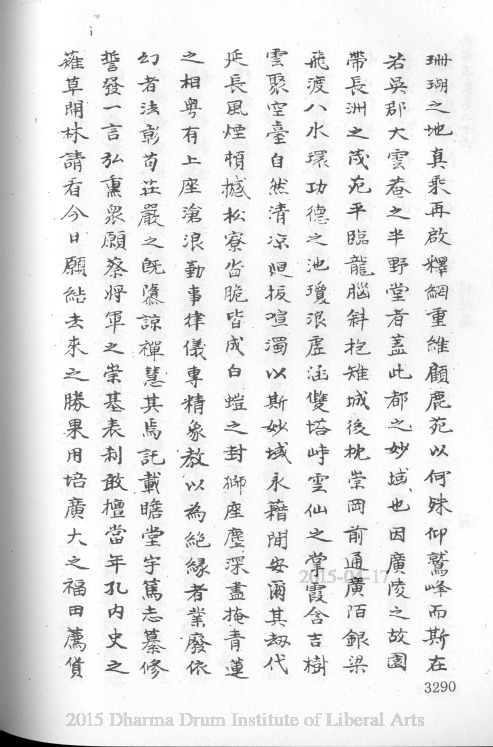 珊瑚之地真乘再啟釋綱重維顧鹿苑以何殊仰鷲峰而斯在
若吳郡大雲菴之半野堂者蓋此都之妙域也因廣陵之故園
帶長洲之茂苑平臨龍腦斜抱雉城後枕崇岡前通廣陌銀梁
飛渡八水環功德之池瓊浪虛涵雙塔峙雲仙之掌霞含吉樹
雲聚空臺自然清涼迥拔喧濁以斯妙域永藉閒安爾其劫代
延長風煙頓撼松寮沓脆皆成白螘之封獅座塵深盡掩青蓮
之相粵有上座滄浪勤事律儀專精象教以為絶緣者業廢依
幻者法彰苟莊嚴之既隳諒禪慧其焉託載瞻堂宇篤志慕修
誓發一言弘熏眾願蔡將軍之崇基表刹敢檀當年孔內史之
薙草開林請看今日願結去來之勝果用培廣大之福田薦貨
3290
2015-04-17
2015 Dharma Drum Institute of Liberal Arts